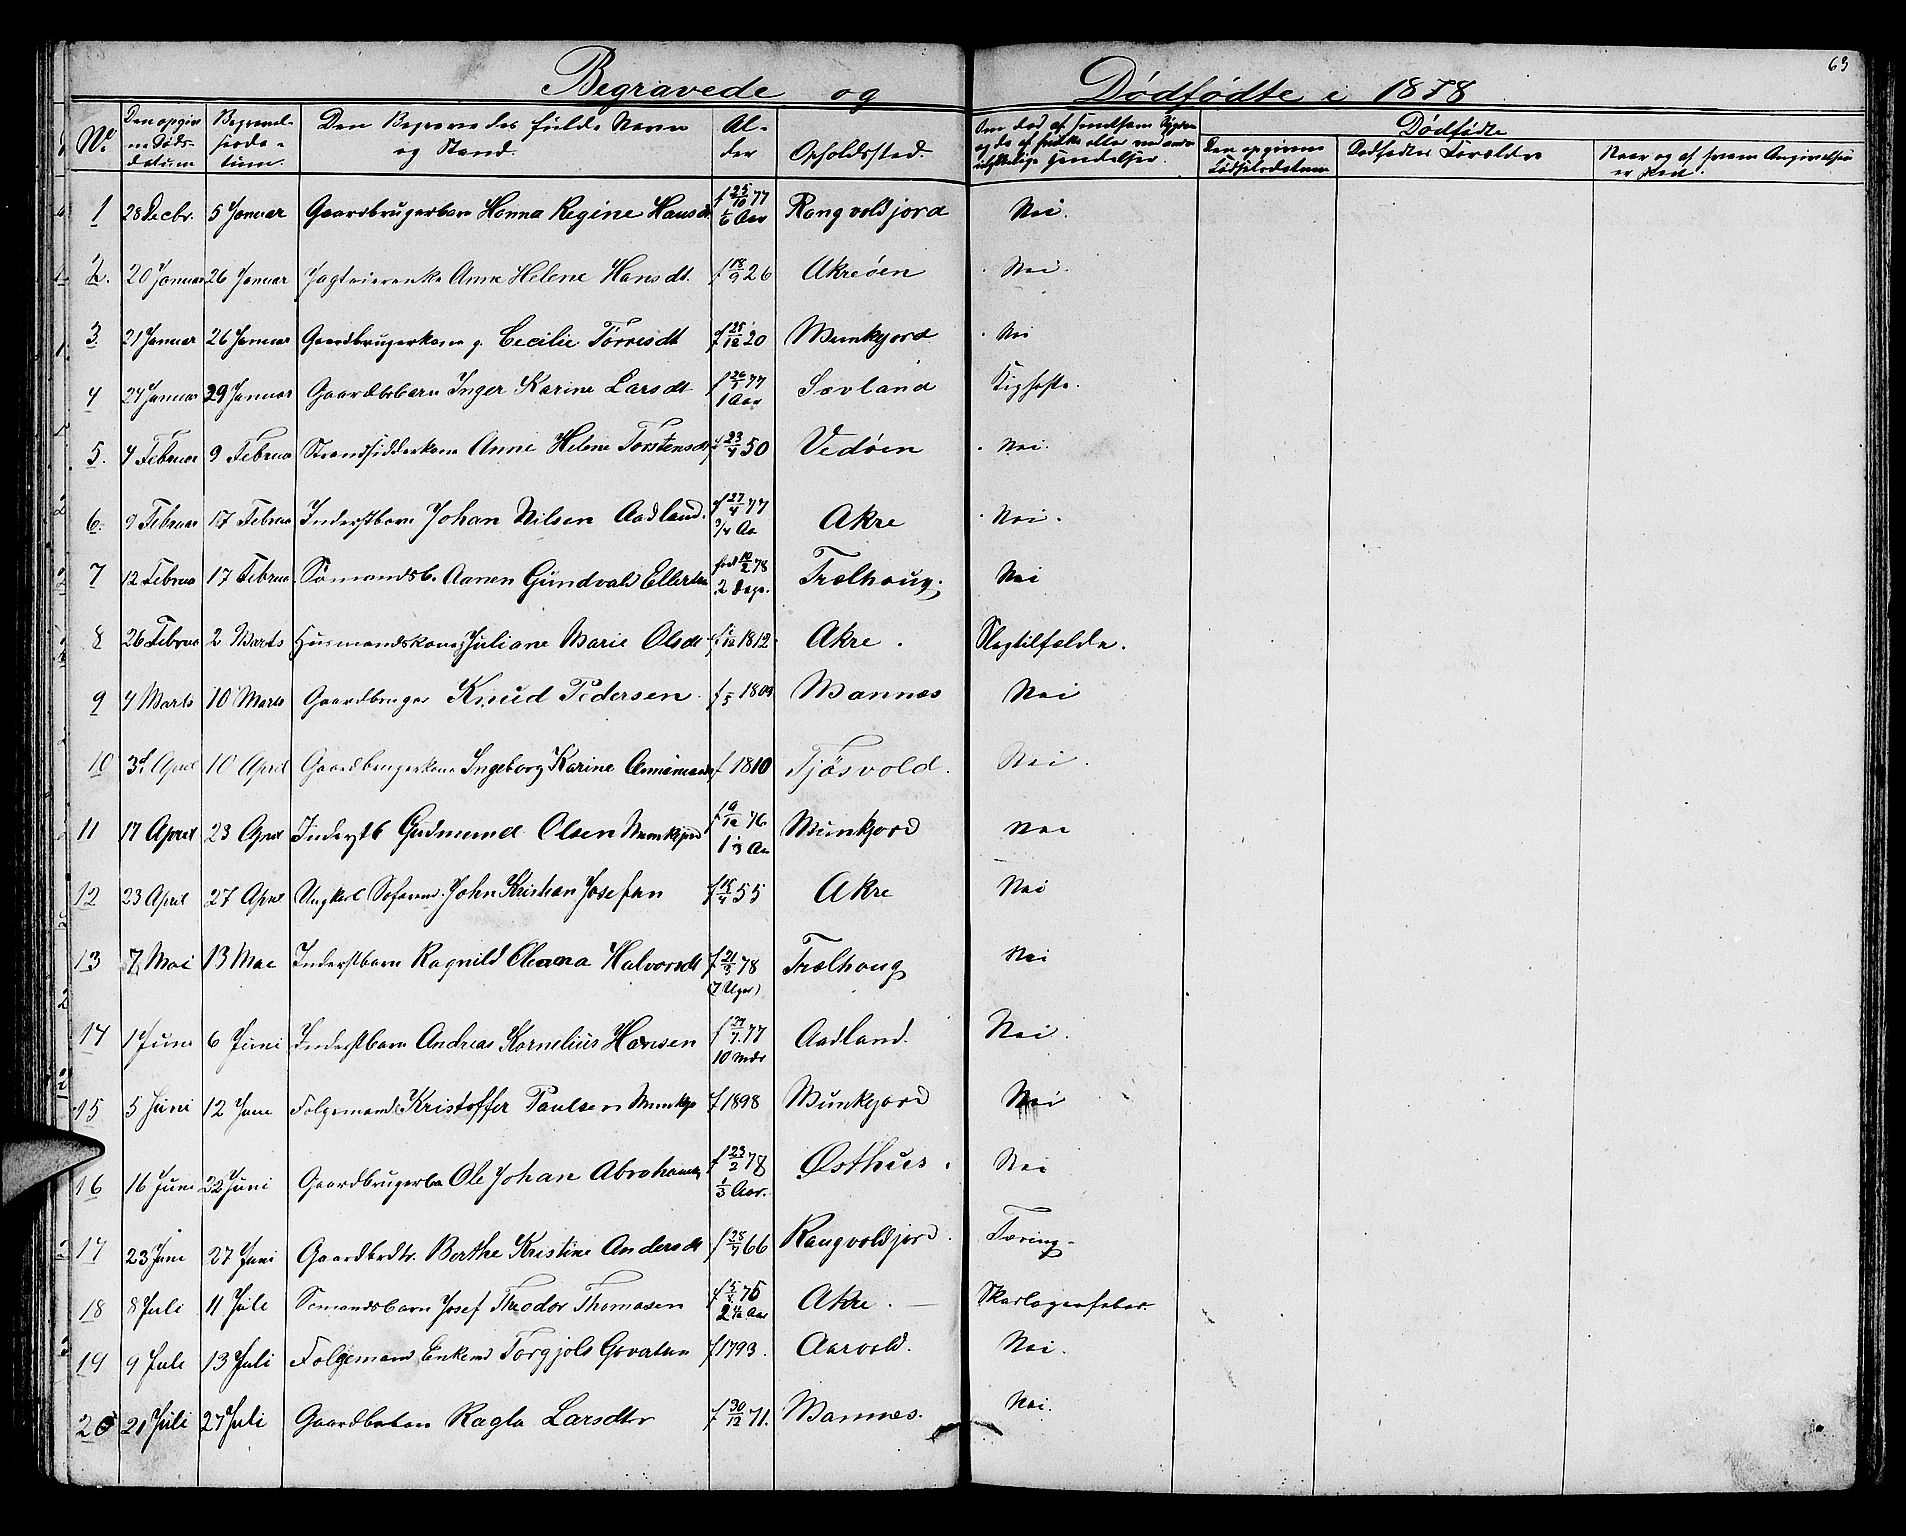 63
Begravede og Dødfødte i 1878
No. Den opgivne Dødsdatum Begravelsesdatum Den Begravedes fulde Navn og Stand. Alder Opholdssted. Dødfødte
Den opgivne Fødselsdatum Dødfødtes Forældre Naar og af hvem Angivelsen er skeet.
1 28 Decbr. 5 Januar Gaardbrugerbarn Hanna Regine Hansdt f 25/10 77 1/6 Aar Rangvoldjord Nei.
2. 20 Januar 26 Januar Jagteierenke Anna Helene Hansdt. f 18/9 26 Akreøen Nei.
3. 21 Januar 26 Januar Gaardbrugerkone g. Cecilie Tørresdt f 25/12 20 Munkjord Nei
4 24 Januar 29 Januar Gaardbrbarn Inger Karine Larsdt f 26/1 77 1 Aar Sævland Kighoste.
5. 4 Februar 9 Februa Strandsidderkone Anne Helene Torstensdt f 23/4 50 Vedøen Nei.
6. 9 Februar 17 Februa Inderstbarn Johan Nilsen Aadland. f 27/4 77 3/4 Aa Akre Nei.
7 12 Februa 17 Februa Sømandsb. Aanen Gundvald Ellertsen fød 10/2 78 2 Dage. Trælhoug. Nei
8 26 Februa 2 Marts Husmandskone Juliane Marie Olsdt 1812 Akre. Slagtilfælde.
9 4 Marts 10 Marts Gaardbruger Knud Pedersen. Mannes Nei
10 3d April 10 April Gaardbrugerkone Ingeborg Karine f 1810 Tjøsvold. Nei.
11 17 April 23 April Inderstb Gudmund Olsen Munkjord f 9/12 76 1 1/3 Aa Munkjord Nei
12 23 April 27 April Ungkarl Søfarend. John Kristian Josefsen f 18/4 55 Akre Nei
13 7 Mai 13 Mai Inderstbarn Ragnild Oleana Halvorsdt f 21/3 78 (7 Uger) Trælhoug Nei
14 1 Juni 6 Juni Inderstbarn Andreas Kornelius Hansen 77 10 Mdr Aadland. Nei.
15 5 Juni 12 Juni Folgemand Kristoffer Paulsen Munkjo f 1898 Munkjord Nei
16 16 Juni 22 Juni Gaardbrugerba Ole Johan Abrahamsen f 23/2 78 1/3 Aar. Østhus. Nei
17 23 Juni 27 Juni Gaardbrdtr. Berthe Kristine Andersdt f 25/7 66 Rangvoldjord. Tæring.
18 8 Juli 11 Juli Sømandsbarn Josef Theodor Thomasen 2 Aar Akre. Skarlagensfeber.
19 9 Juli 13 Juli Folgemand Enkemd Torgjols Govertsen f 1793. Aarvold. Nei.
20 21 Juli 27 Juli Gaardbrbarn Ragla Larsdtr f 30/12 71. Mannes. Nei.